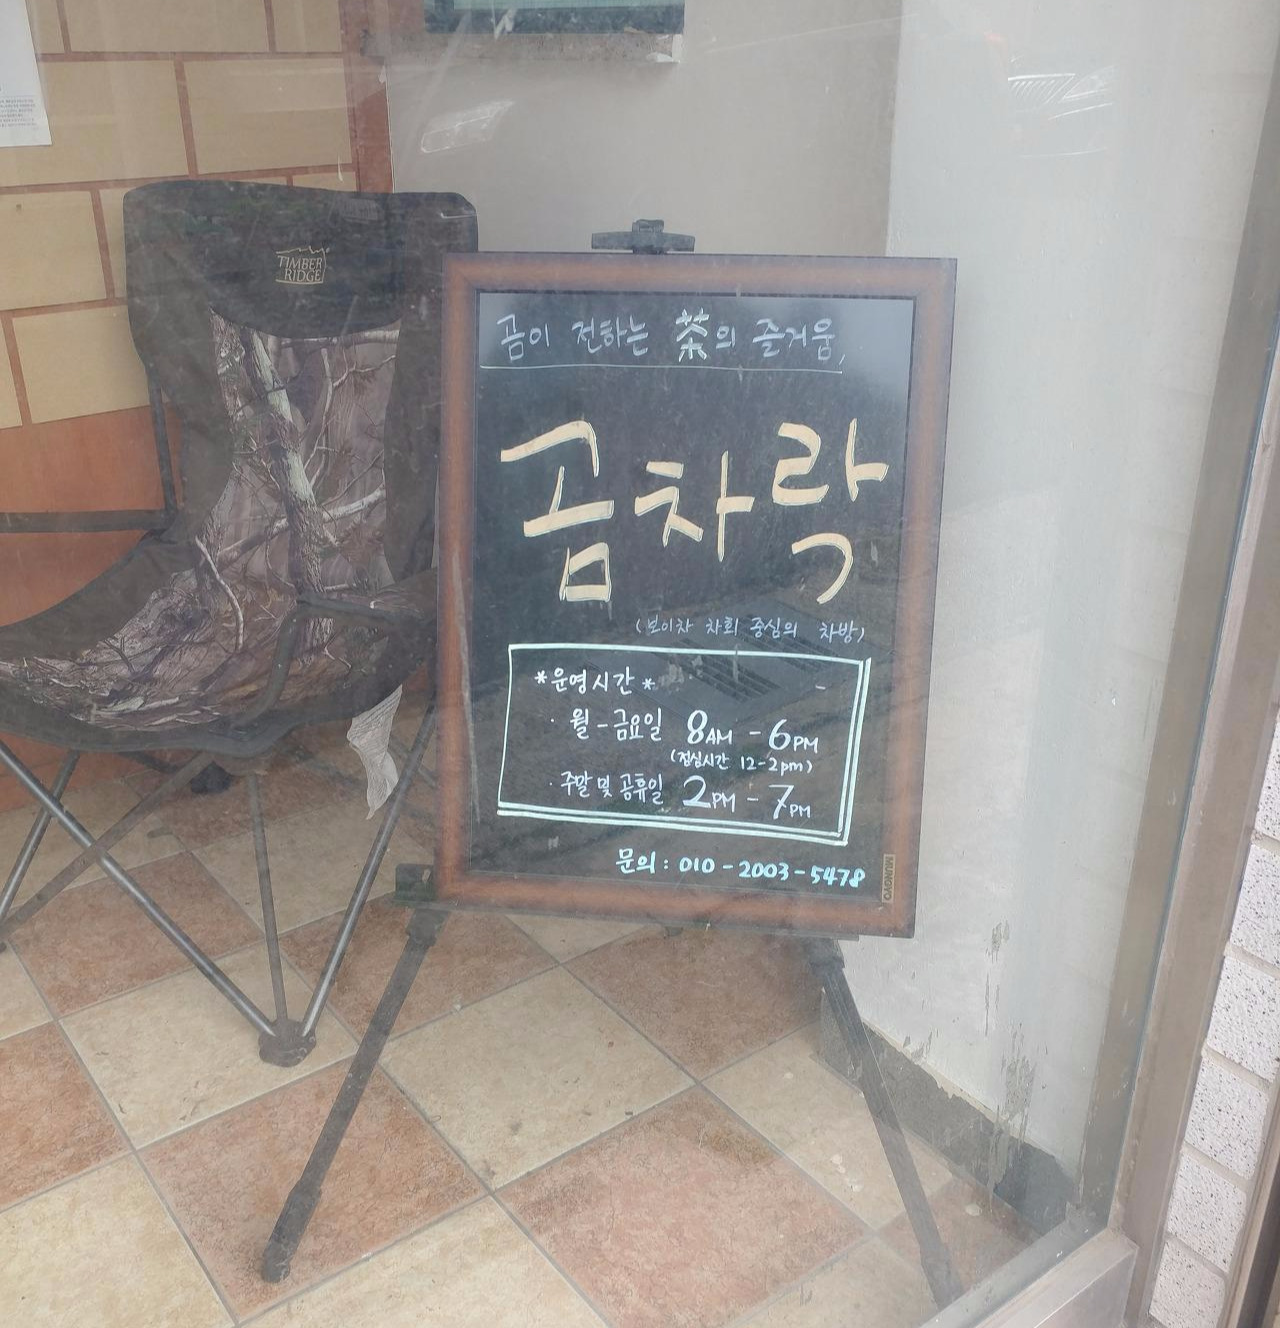 TIMBER
RIDGE
곰이 전하는 茶의 즐거움,
곰차락
(보이차 차회 중심의 차방)
*운영시간*
· 월-금요일 8AM - 6PM
(점심시간 12-2pm)
· 주말 및 공휴일 2PM - 7PM
문의 : 010-2003-5478
MUNGYO